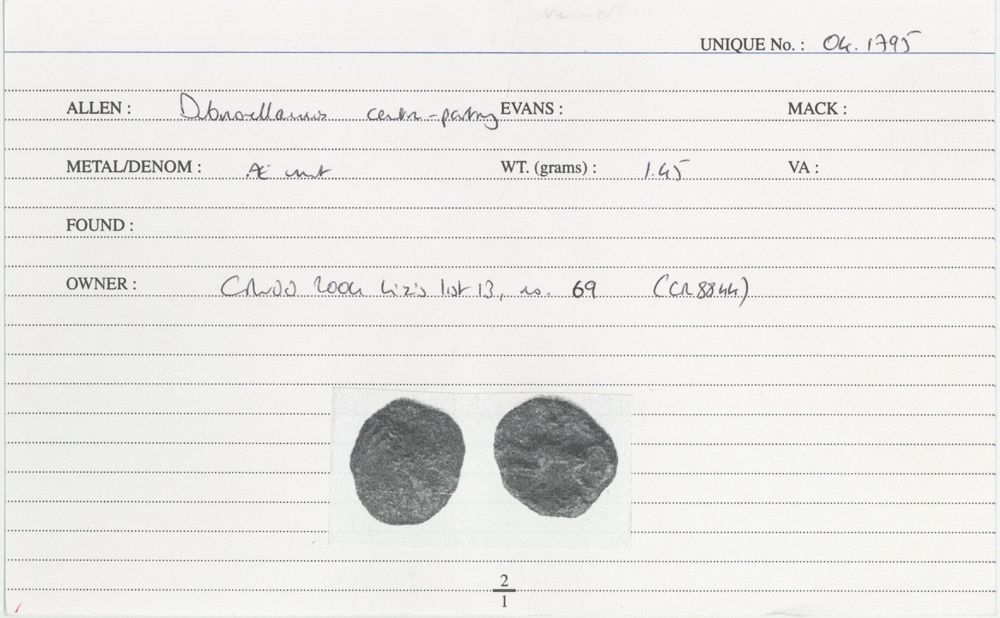 UNIQUE No. : 04.1795
ALLEN : Dubnovellaunus EVANS : MACK :
METAL/DENOM : Æ unit WT. (grams) : 1.45 VA :
FOUND :
OWNER : 2004 Liz's list 13, no. 69 (CR 8844)
2
1